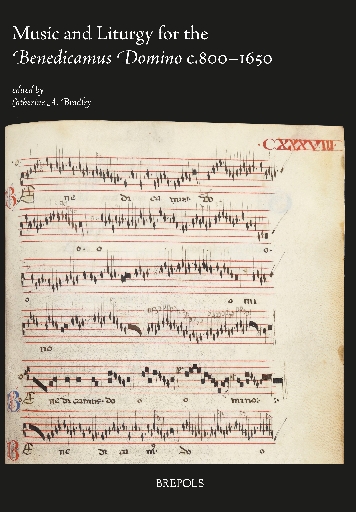 Music and Liturgy for the
Benedicamus Domino c.800–1650
edited by
Catherine A. Bradley
ne di ca mus do
o o o
o o mi
no
ne di camus do o o mino
ne di ca m do o
BREPOLS